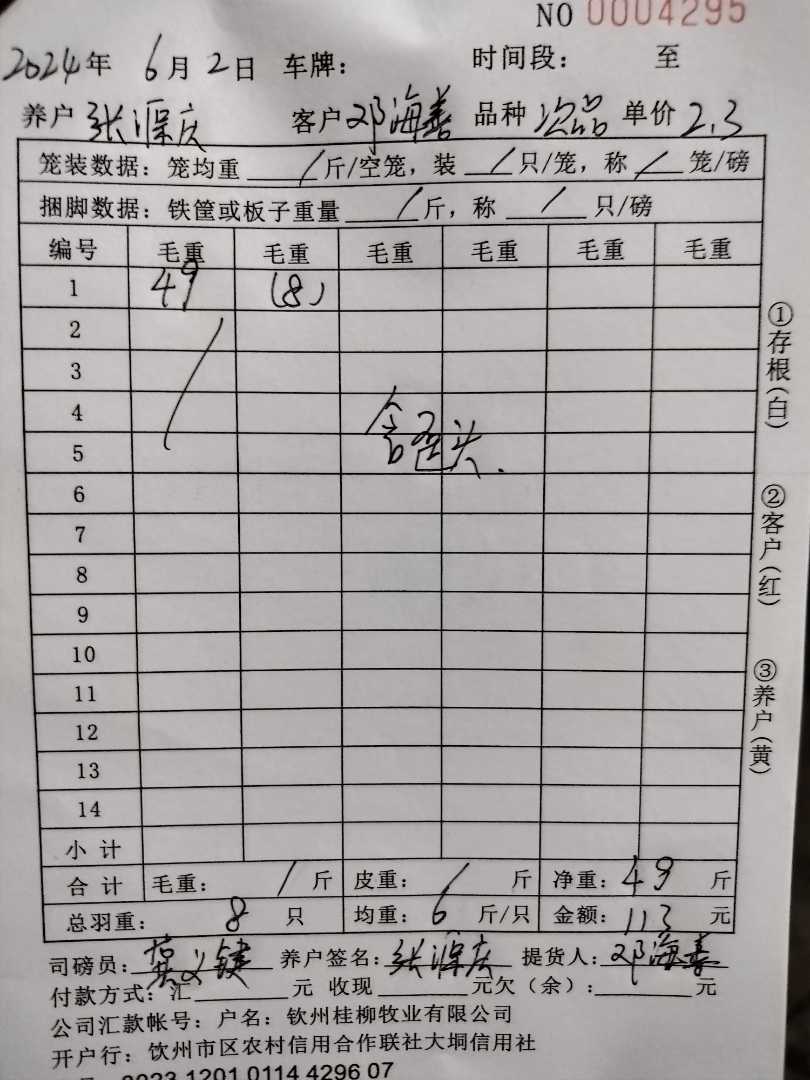 NO 0004295
2024年 6月2日 车牌： 时间段： 至
养户 张源庆 客户 邓海善 品种 次品 单价 2.3
笼装数据：笼均重 / 斤/空笼，装 / 只/笼，称 / 笼/磅
捆脚数据：铁筐或板子重量 / 斤，称 / 只/磅
编号 毛重 毛重 毛重 毛重 毛重 毛重
1 49 (8)
2
3
4
5
含歪头.
6
7
8
9
10
11
12
13
14
小计
合计 毛重： / 斤 皮重： / 斤 净重：49 斤
总羽重： 8 只 均重：6 斤/只 金额：113 元
司磅员： 养户签名：张源庆 提货人：邓海善
付款方式：汇 元 收现 元欠（余）： 元
公司汇款帐号：户名：钦州桂柳牧业有限公司
开户行：钦州市区农村信用合作联社大垌信用社
①存根（白）
②客户（红）
③养户（黄）